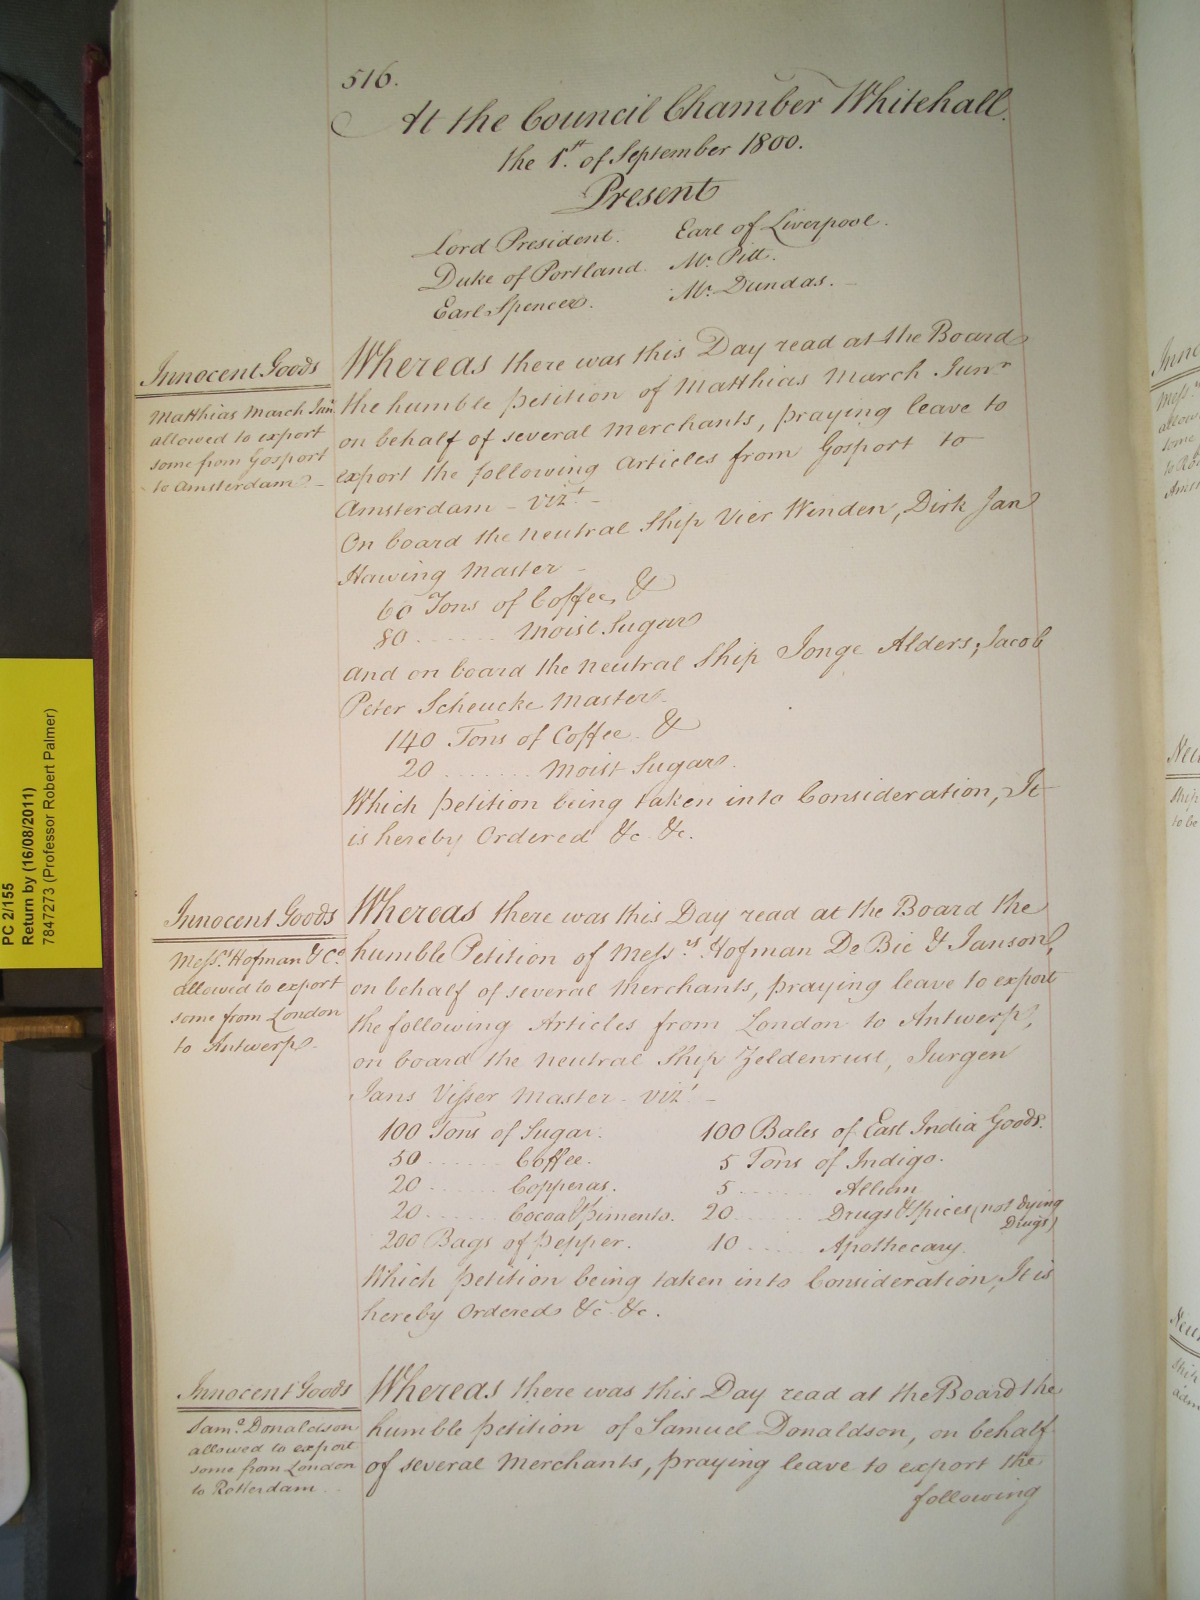 516.
At the Council Chamber Whitehall.
the 1st. of September 1800.
Present
Lord President. Earl of Liverpool.
Duke of Portland. Mr. Pitt.
Earl Spencer. Mr. Dundas.
Innocent Goods
Matthias March Junr.
allowed to export
some from Gosport
to Amsterdam
Whereas there was this Day read at the Board
the humble petition of Matthias March Junr
on behalf of several Merchants, praying leave to
export the following Articles from Gosport to
Amsterdam - vizt.
On board the neutral Ship Vier Winden, Dirk Jan
Hawing Master
60 Tons of Coffee, &
80 ...... Moist Sugar
And on board the neutral Ship Jonge Alders, Jacob
Peter Scheucke Master
140 Tons of Coffee &
20 ....... Moist Sugar.
Which petition being taken into Consideration, It
is hereby Ordered &c. &c.
Innocent Goods
Messrs. Hofman & Co.
allowed to export
some from London
to Antwerp.
Whereas there was this Day read at the Board the
humble Petition of Messrs. Hofman De Bie & Janson,
on behalf of several Merchants, praying leave to export
the following Articles from London to Antwerp,
on board the neutral Ship Zeldenrust, Jurgen
Jans Visser Master - vizt.
100 Tons of Sugar. 100 Bales of East India Goods.
50 ...... Coffee. 5 Tons of Indigo.
20 ...... Copperas. 5 ...... Allum
20 ...... Cocoa & Piments. 20 ...... Drugs & Spices (not dying
Drugs)
200 Bags of Pepper. 10 ..... Apothecary.
Which petition being taken into Consideration, It is
hereby Ordered &c. &c.
Innocent Goods
Saml. Donaldson
allowed to export
some from London
to Rotterdam
Whereas there was this Day read at the Board the
humble petition of Samuel Donaldson, on behalf
of several Merchants, praying leave to export the
following
PC 2/155
Return by (16/08/2011)
7847273 (Professor Robert Palmer)